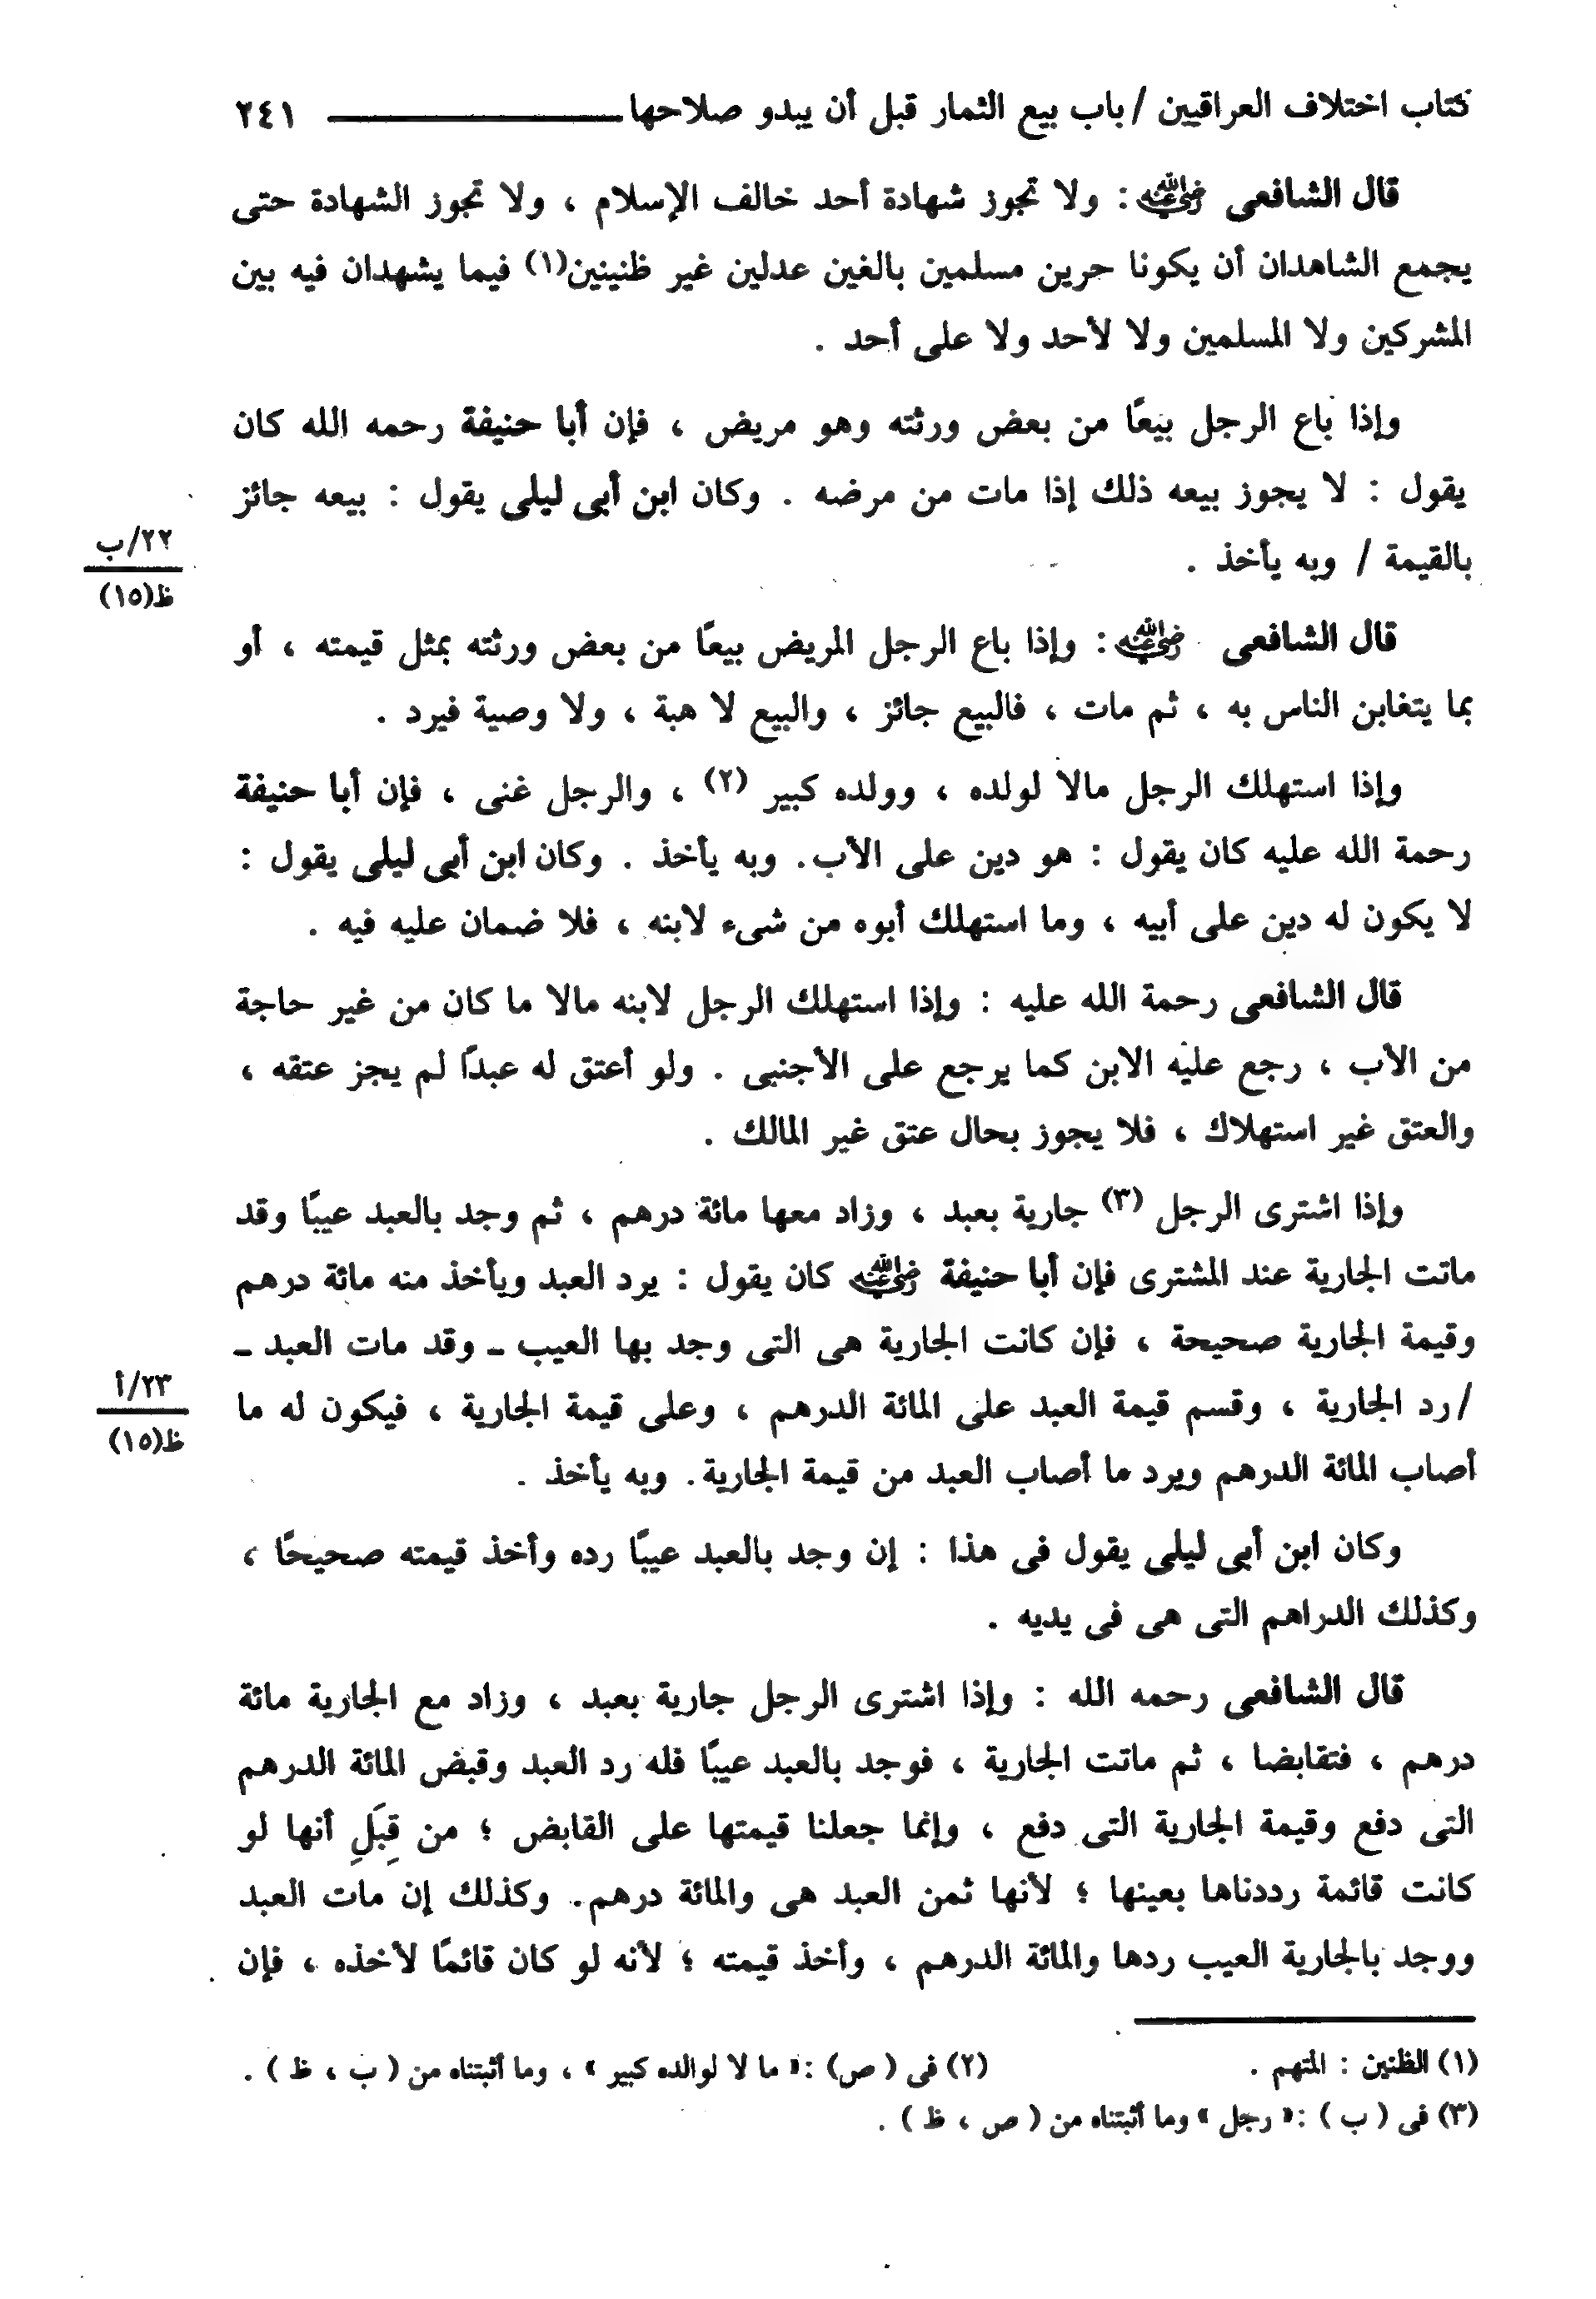 كتاب اختلاف العراقيين / باب بيع الثمار قبل أن يبدو صلاحها ٢٤١
قال الشافعى رضي الله عنه : ولا تجوز شهادة أحد خالف الإسلام ، ولا تجوز الشهادة حتى
يجمع الشاهدان أن يكونا حرين مسلمين بالغين عدلين غير ظنينين(١) فيما يشهدان فيه بين
المشركين ولا المسلمين ولا لأحد ولا على أحد .
وإذا باع الرجل بيعًا من بعض ورثته وهو مريض ، فإن أبا حنيفة رحمه الله كان
يقول : لا يجوز بيعه ذلك إذا مات من مرضه . وكان ابن أبى ليلى يقول : بيعه جائز
٢٢/ب
ظ(١٥)
بالقيمة / وبه يأخذ .
قال الشافعى رضي الله عنه : وإذا باع الرجل المريض بيعًا من بعض ورثته بمثل قيمته ، أو
بما يتغابن الناس به ، ثم مات ، فالبيع جائز ، والبيع لا هبة ، ولا وصية فيرد .
وإذا استهلك الرجل مالا لولده ، وولده كبير (٢) ، والرجل غنى ، فإن أبا حنيفة
رحمة الله عليه كان يقول : هو دين على الأب. وبه يأخذ . وكان ابن أبى ليلى يقول :
لا يكون له دين على أبيه ، وما استهلك أبوه من شىء لابنه ، فلا ضمان عليه فيه .
قال الشافعى رحمة الله عليه : وإذا استهلك الرجل لابنه مالا ما كان من غير حاجة
من الأب ، رجع عليه الابن كما يرجع على الأجنبى . ولو أعتق له عبدًا لم يجز عتقه ،
والعتق غير استهلاك ، فلا يجوز بحال عتق غير المالك .
وإذا اشترى الرجل (٣) جارية بعبد ، وزاد معها مائة درهم ، ثم وجد بالعبد عيبًا وقد
ماتت الجارية عند المشترى فإن أبا حنيفة رضي الله عنه كان يقول : يرد العبد ويأخذ منه مائة درهم
وقيمة الجارية صحيحة ، فإن كانت الجارية هى التى وجد بها العيب ـ وقد مات العبد ـ
٢٣/أ
ظ(١٥)
/رد الجارية ، وقسم قيمة العبد على المائة الدرهم ، وعلى قيمة الجارية ، فيكون له ما
أصاب المائة الدرهم ويرد ما أصاب العبد من قيمة الجارية. وبه يأخذ .
وكان ابن أبى ليلى يقول فى هذا : إن وجد بالعبد عيبًا رده وأخذ قيمته صحيحًا ،
وكذلك الدراهم التى هى فى يديه .
قال الشافعى رحمه الله : وإذا اشترى الرجل جارية بعبد ، وزاد مع الجارية مائة
درهم ، فتقابضا ، ثم ماتت الجارية ، فوجد بالعبد عيبًا فله رد العبد وقبض المائة الدرهم
التى دفع وقيمة الجارية التى دفع ، وإنما جعلنا قيمتها على القابض ؛ من قِبَلِ أنها لو
كانت قائمة رددناها بعينها ؛ لأنها ثمن العبد هى والمائة درهم. وكذلك إن مات العبد
ووجد بالجارية العيب ردها والمائة الدرهم ، وأخذ قيمته ؛ لأنه لو كان قائمًا لأخذه ، فإن
(١) الظنين : المتهم . (٢) فى ( ص) :« ما لا لوالده كبير » ، وما أثبتناه من ( ب ، ظ ) .
(٣) فى ( ب ) :« رجل » وما أثبتناه من ( ص ، ظ ) .